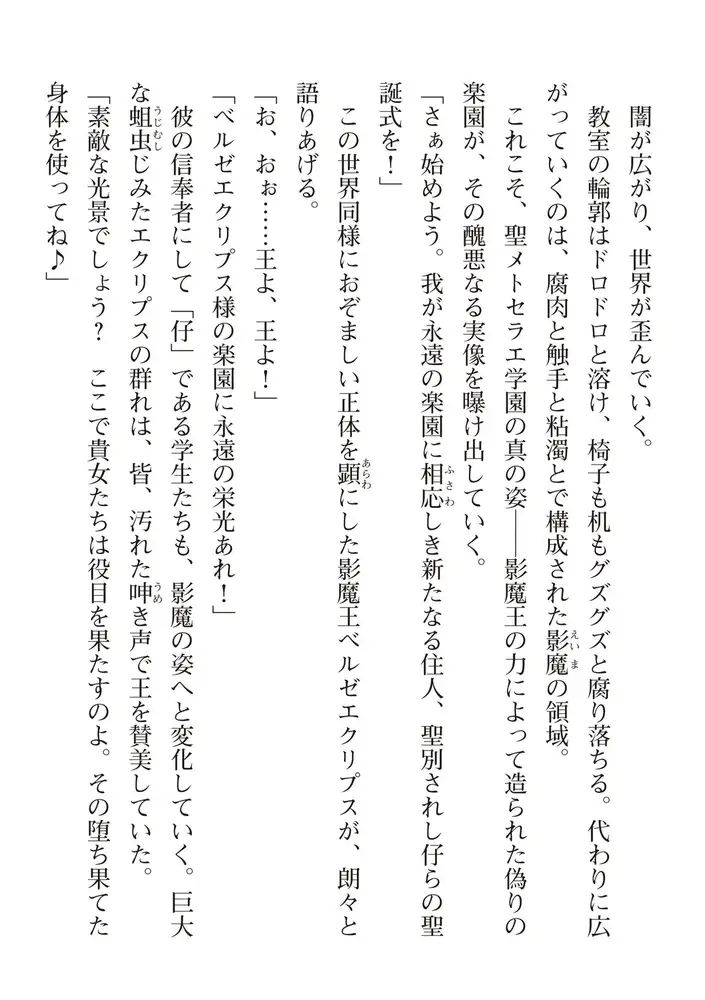 闇が広がり、世界が歪んでいく。
教室の輪郭はドロドロと溶け、椅子も机もグズグズと腐り落ちる。代わりに広
がっていくのは、腐肉と触手と粘濁とで構成された影魔の領域。
これこそ、聖メトセラエ学園の真の姿――影魔王の力によって造られた偽りの
楽園が、その醜悪なる実像を曝け出していく。
「さぁ始めよう。我が永遠の楽園に相応しき新たなる住人、聖別されし仔らの聖
誕式を！」
この世界同様におぞましい正体を顕にした影魔王ベルゼエクリプスが、朗々と
語りあげる。
「お、おぉ……王よ、王よ！」
「ベルゼエクリプス様の楽園に永遠の栄光あれ！」
彼の信奉者にして「仔」である学生たちも、影魔の姿へと変化していく。巨大
な蛆虫じみたエクリプスの群れは、皆、汚れた呻き声で王を賛美していた。
「素敵な光景でしょう？　ここで貴女たちは役目を果たすのよ。その堕ち果てた
身体を使ってね♪」